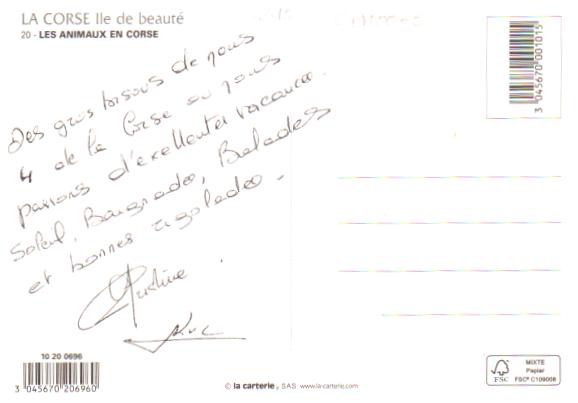 LA CORSE Ile de beauté
20 - LES ANIMAUX EN CORSE
Des gros bisous de nous
4 de la Corse ou nous
passons d'excellentes vacances.
Soleil, Baignades, Balades
et bonnes rigolades.
Christine
Luc
10 20 0696
3 045670 206960
© la carterie, SAS www.la-carterie.com
3 045670 001015
FSC
MIXTE
Papier
FSC® C109008